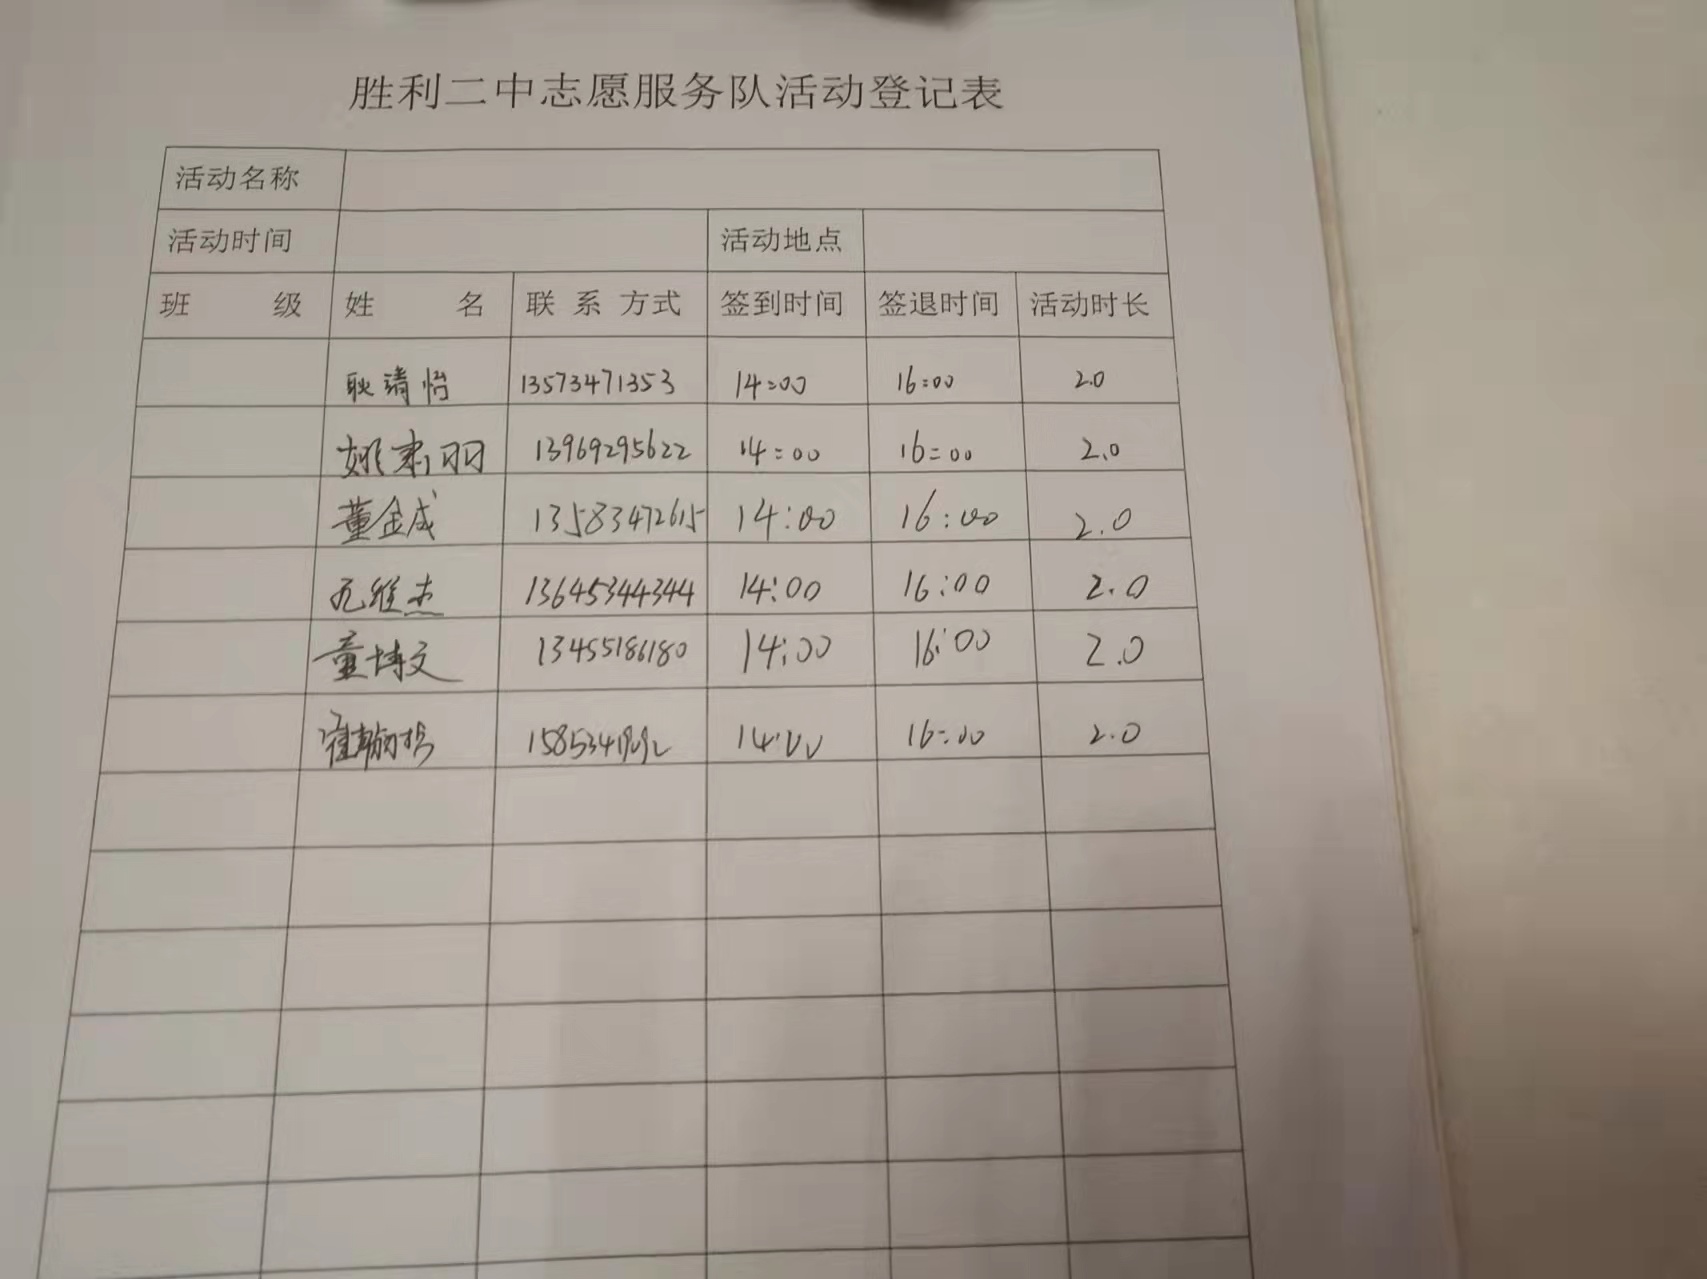 胜利二中志愿服务队活动登记表
活动名称
活动时间 活动地点
班 级 姓 名 联 系 方式 签到时间 签退时间 活动时长
耿靖怡 13573471353 14:00 16:00 2.0
姚肃羽 13969295622 14:00 16:00 2.0
董金成 13583472615 14:00 16:00 2.0
维杰 13645344344 14:00 16:00 2.0
童博文 13455186180 14:00 16:00 2.0
14:00 16:00 2.0